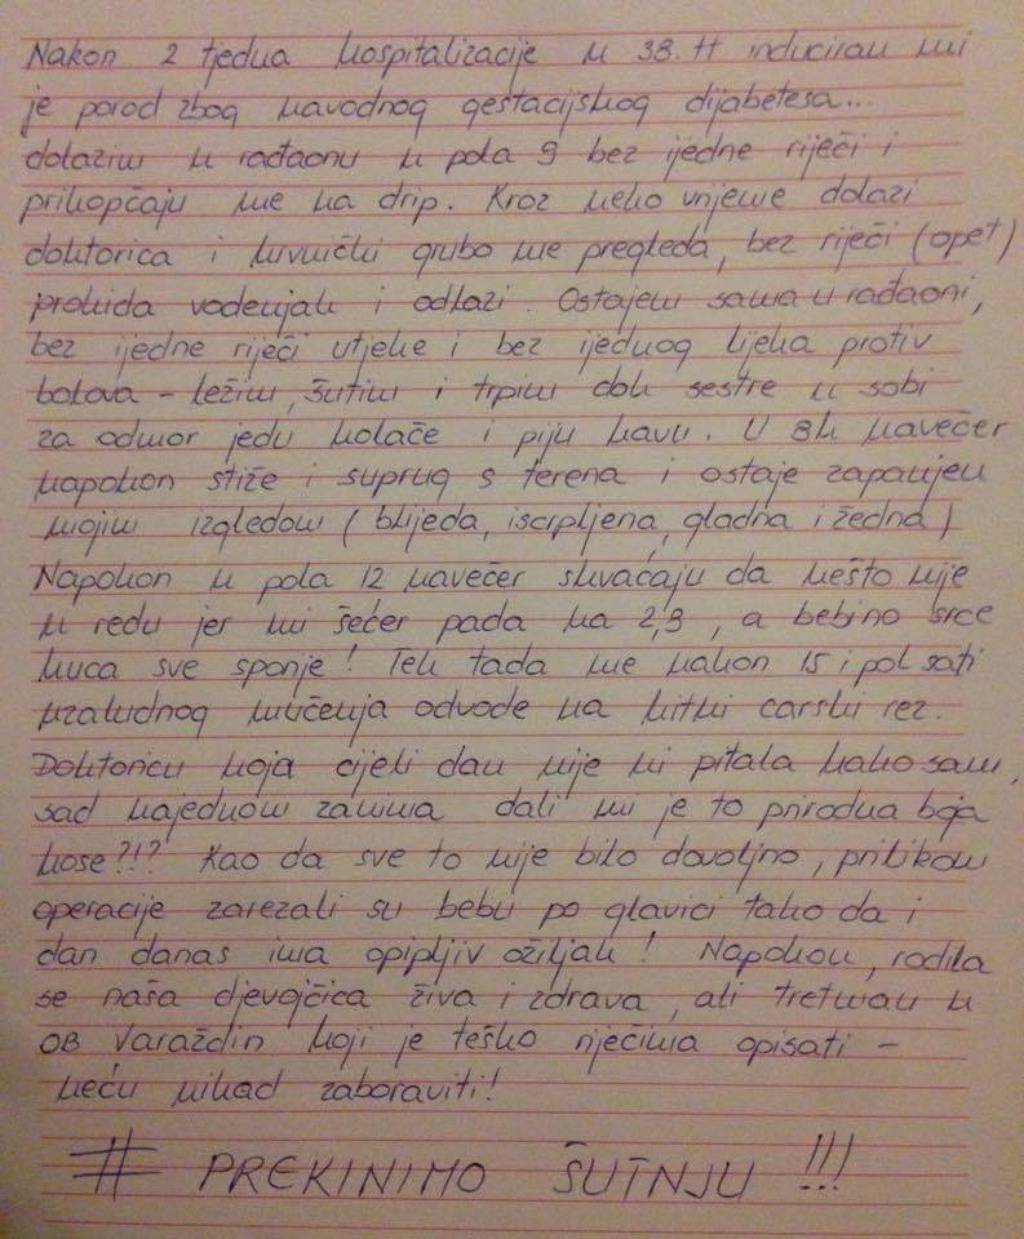 Nakon 2 tjedna hospitalizacije u 38. tt induciran mi
je porod zbog navodnog gestacijskog dijabetesa...
dolazim u rađaonu u pola 9 bez ijedne riječi i
prikopčaju me na drip. Kroz neko vrijeme dolazi
doktorica i krvnički grubo me pregleda, bez riječi (opet)
prokida vodenjak i odlazi. Ostajem sama u rađaoni,
bez ijedne riječi utjehe i bez ijednog lijeka protiv
bolova - ležim, šutim i trpim dok sestre u sobi
za odmor jedu kolače i piju kavu. U 8h navečer
napokon stiže i suprug s terena i ostaje zapanjen
mojim izgledom (blijeda, iscrpljena, gladna i žedna)
Napokon u pola 12 navečer shvaćaju da nešto nije
u redu jer mi šećer pada na 2,3, a bebino srce
kuca sve sporije! Tek tada me nakon 15 i pol sati
uzaludnog mučenja odvode na hitni carski rez.
Doktoricu koja cijeli dan nije ni pitala kako sam,
sad najednom zanima dali mi je to prirodna boja
kose?!? Kao da sve to nije bilo dovoljno, prilikom
operacije zarezali su bebu po glavici tako da i
dan danas ima opipljiv ožiljak! Napokon, rodila
se naša djevojčica živa i zdrava, ali tretman u
OB Varaždin koji je teško riječima opisati -
neću nikad zaboraviti!
# PREKINIMO ŠUTNJU !!!